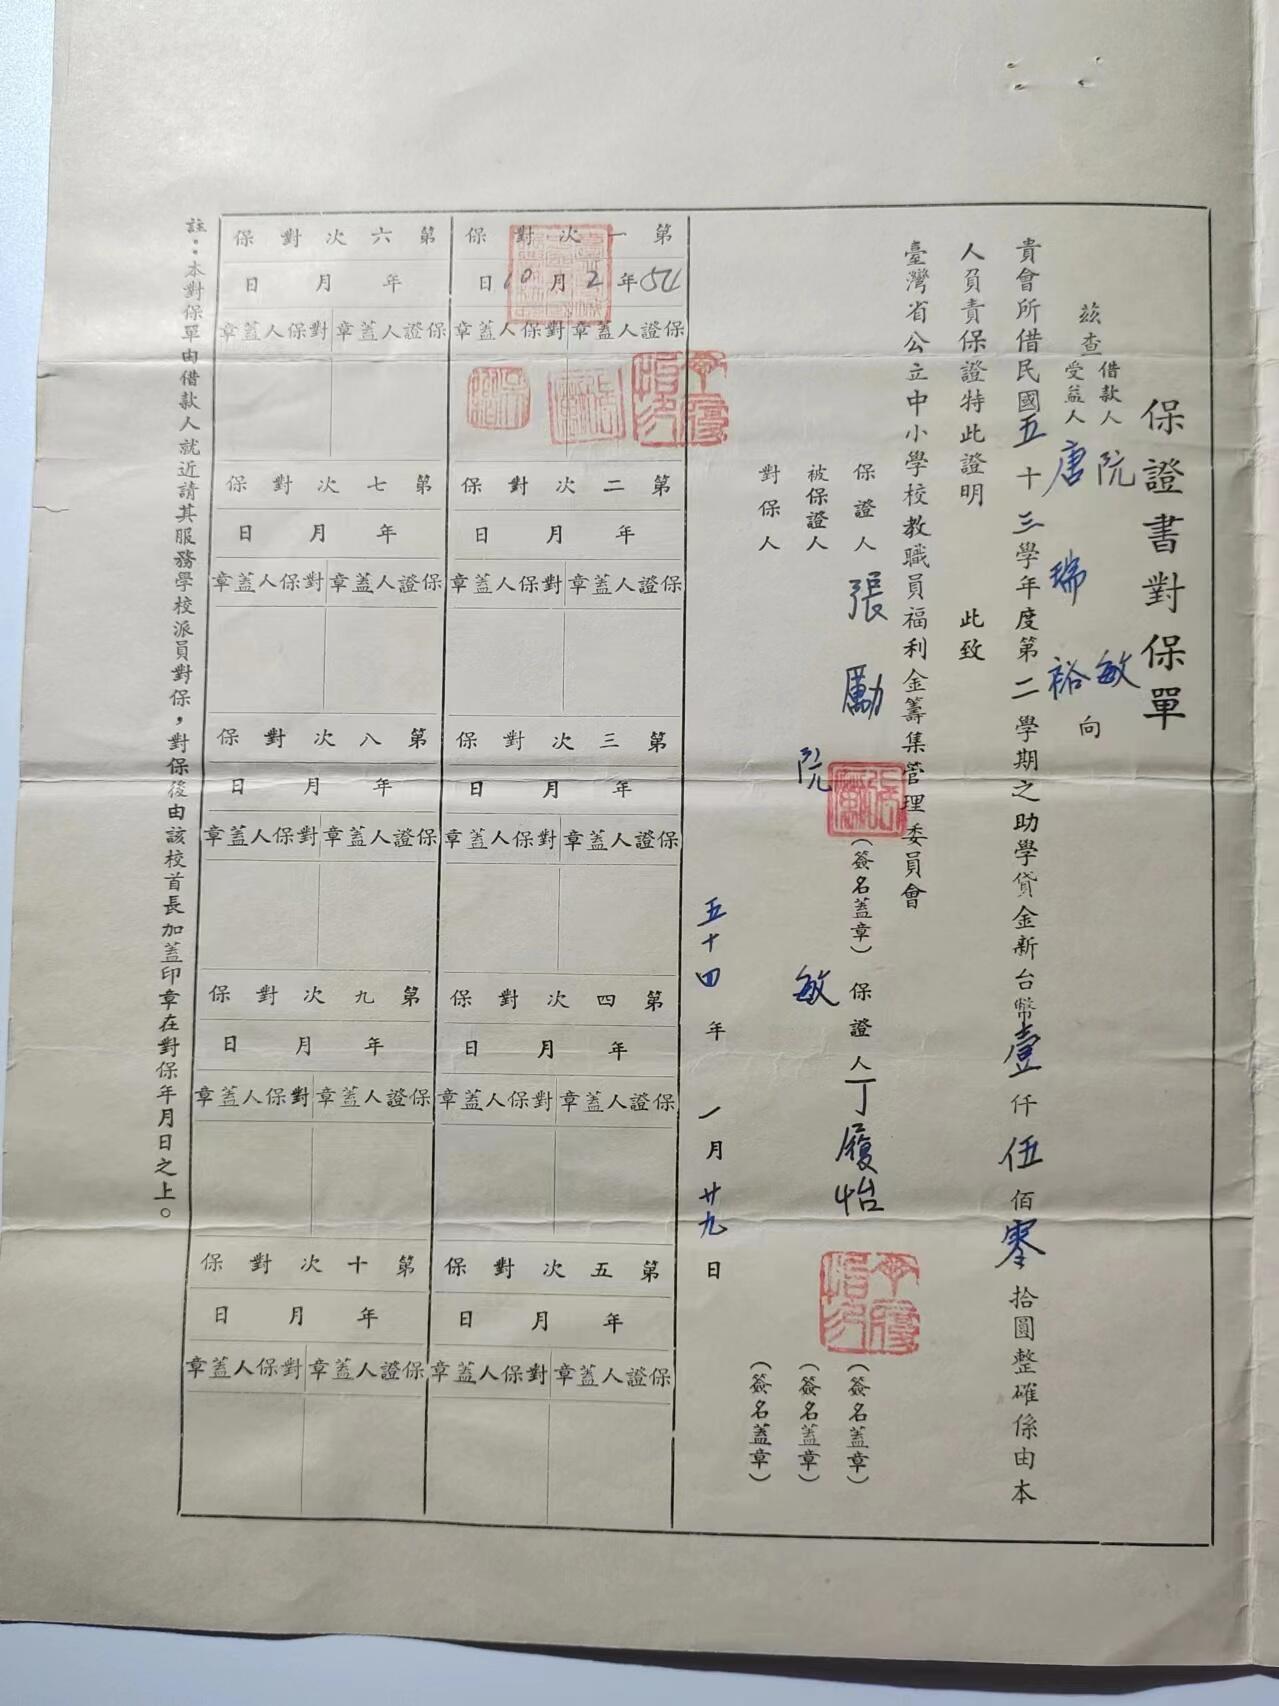 保證書對保單
茲查
借款人 阮敏
受益人 唐瑞裕
向
貴會所借民國五十三學年度第二學期之助學貸金新台幣壹仟伍佰零拾圓整確係由本
人負責保證特此證明
此致
臺灣省公立中小學校教職員福利金籌集管理委員會
保證人 張勵 (簽名蓋章) 保證人 丁履怡 (簽名蓋章)
被保證人 阮敏 (簽名蓋章)
對保人 (簽名蓋章)
五十四年一月廿九日
第一次對保
54年2月10日
保證人蓋章 對保人蓋章
第二次對保
年 月 日
保證人蓋章 對保人蓋章
第三次對保
年 月 日
保證人蓋章 對保人蓋章
第四次對保
年 月 日
保證人蓋章 對保人蓋章
第五次對保
年 月 日
保證人蓋章 對保人蓋章
第六次對保
年 月 日
保證人蓋章 對保人蓋章
第七次對保
年 月 日
保證人蓋章 對保人蓋章
第八次對保
年 月 日
保證人蓋章 對保人蓋章
第九次對保
年 月 日
保證人蓋章 對保人蓋章
第十次對保
年 月 日
保證人蓋章 對保人蓋章
註：本對保單由借款人就近請其服務學校派員對保，對保後由該校首長加蓋印章在對保年月日之上。